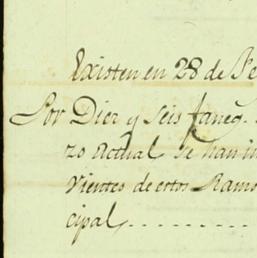 Existen en 28 de
Por Diez y seis faneg.
zo actual se han in
vientes de estos Ramo
cipal